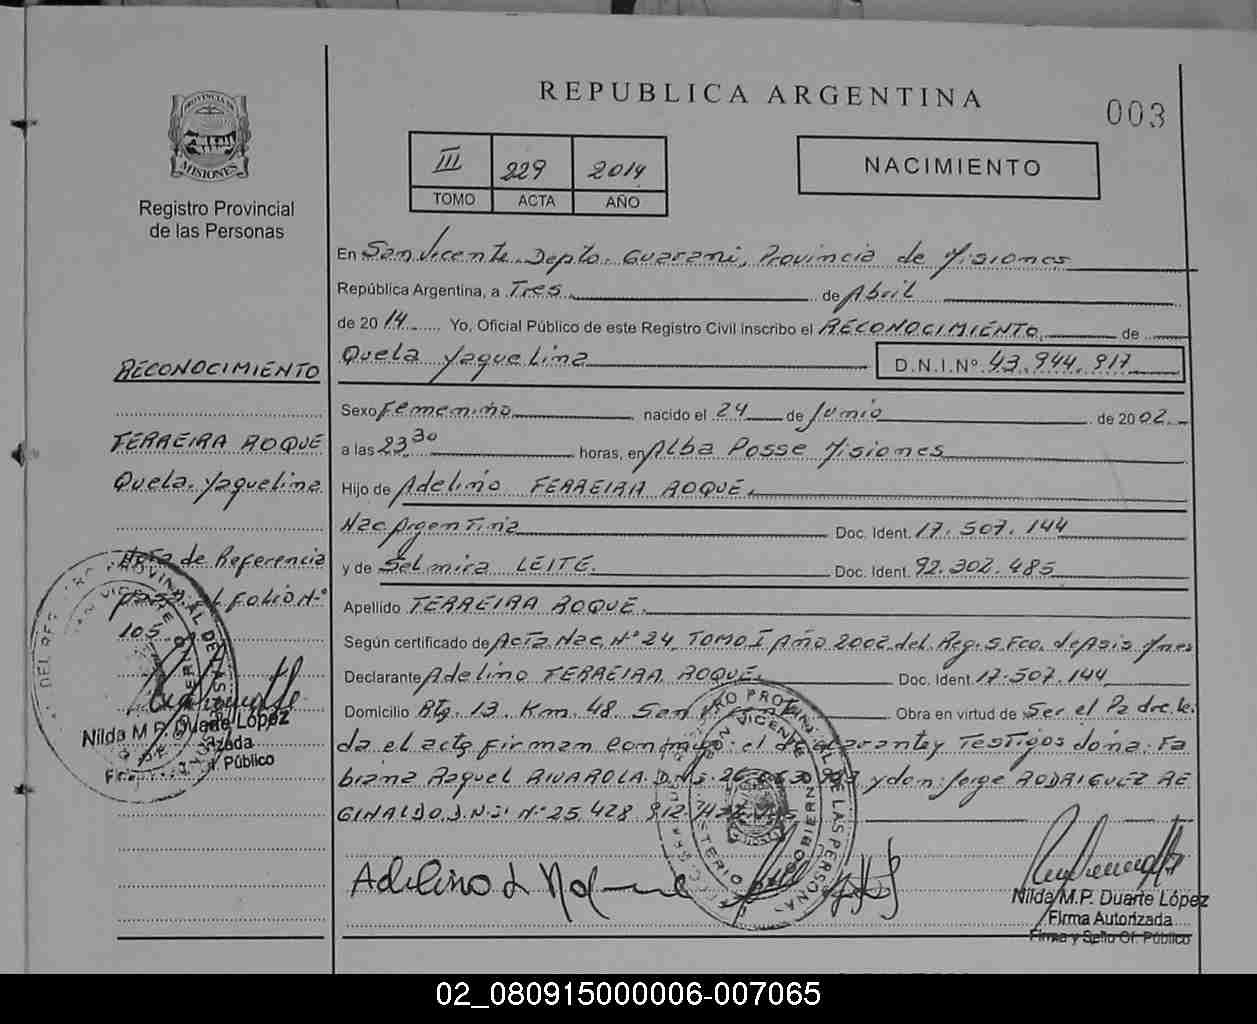 REPUBLICA ARGENTINA
003
PROVINCIA DE
MISIONES
Registro Provincial
de las Personas
III 229 2014
TOMO ACTA AÑO
NACIMIENTO
En San Vicente. Depto. Guarani, Provincia de Misiones
República Argentina, a Tres de Abril
de 2014 Yo, Oficial Público de este Registro Civil inscribo el RECONOCIMIENTO de
Quela Yaquelina D.N.I.Nº 43.944.917
Sexo Femenino nacido el 24 de Junio de 2002
a las 23,30 horas, en Alba Posse Misiones
Hijo de Adelino FERREIRA ROQUE.
Nac Argentina Doc. Ident. 17.507.144
y de Selmira LEITE. Doc. Ident. 92.302.485
Apellido FERREIRA ROQUE.
Según certificado de Acta Nac. Nº 24 TOMO I Año 2002 del Reg. S. Fco. de Asis Mnes
Declarante Adelino FERREIRA ROQUE. Doc. Ident. 17.507.144
Domicilio Rta. 13 Km. 48. San Obra en virtud de Ser el Padre. Le
da el acta firman conmigo: el y Testigos doña: Fa
biana Raquel RIVAROLA. D.N.I. y don: Jorge RODRIGUEZ RE
GINALDO. D.N.I. Nº 25.428
RECONOCIMIENTO
FERREIRA ROQUE
Quela. Yaquelina
Nota de Referencia
FOLIO Nº
105
Nilda M P. Duarte López
Público
Adelino
Nilda M.P. Duarte López
Firma Autorizada
Firma y Sello Of. Público
02_080915000006-007065